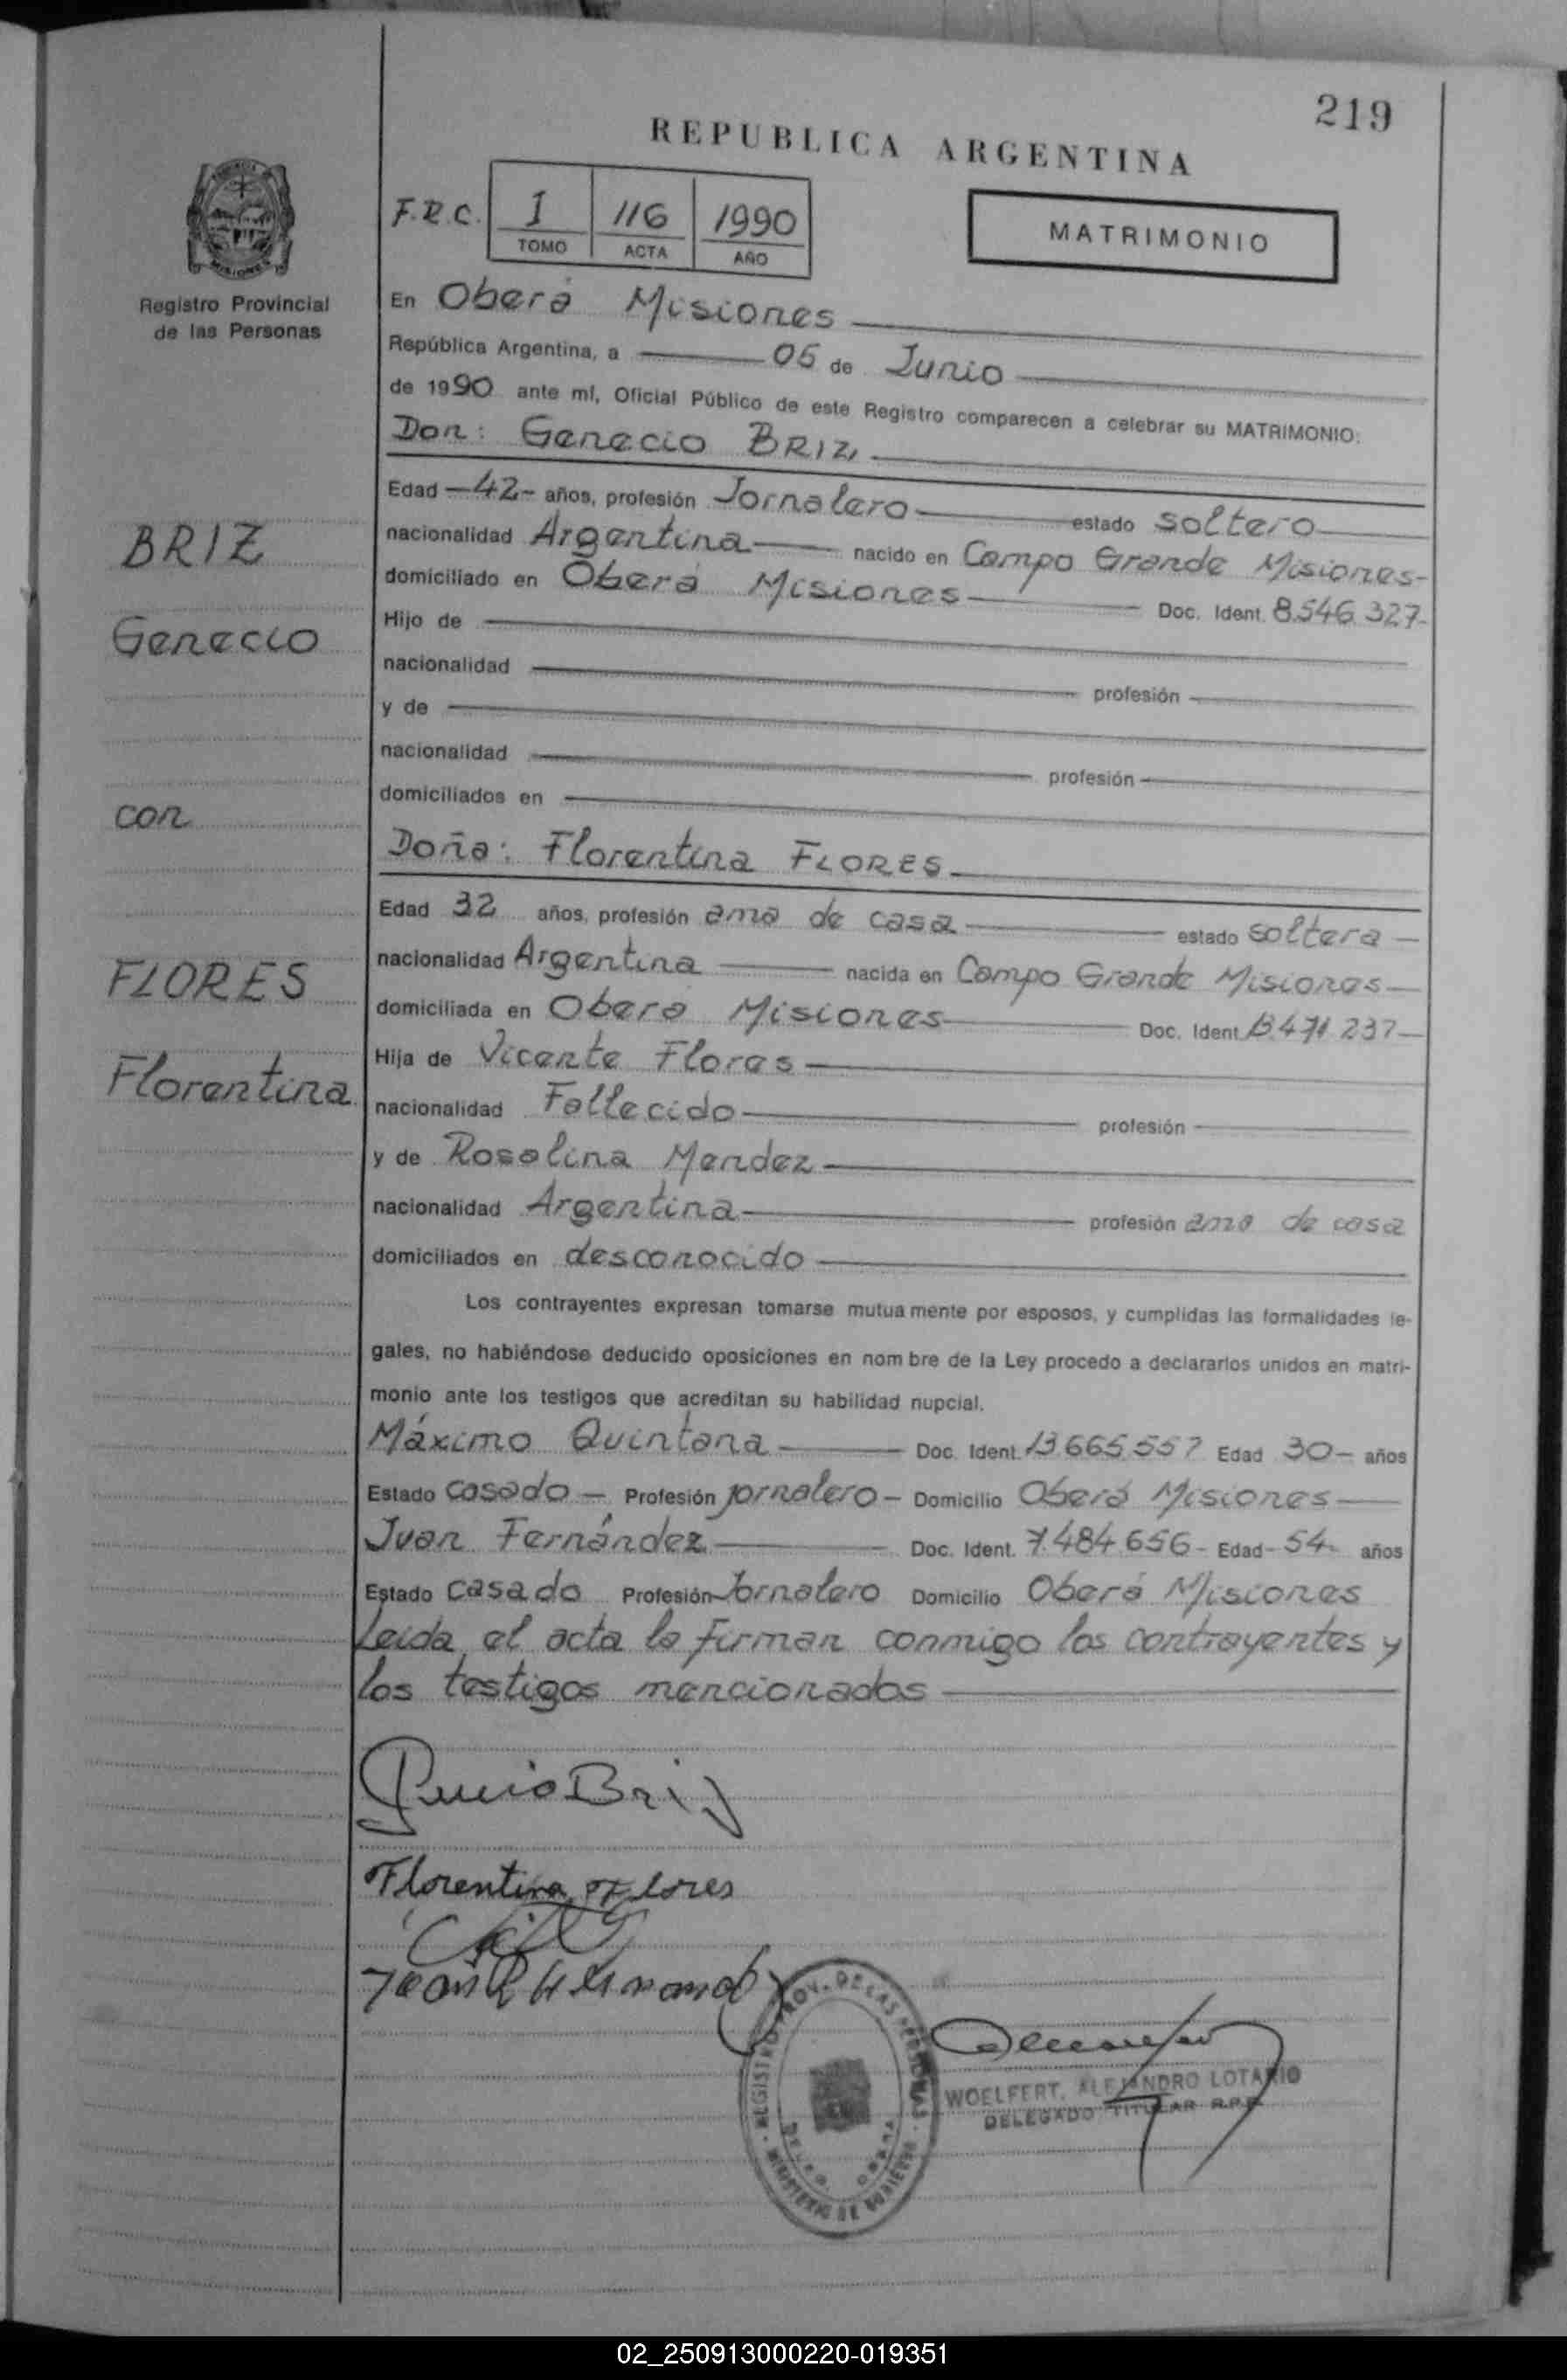 219
REPUBLICA ARGENTINA
F.R.C. I 116 1990
TOMO ACTA AÑO
MATRIMONIO
Registro Provincial
de las Personas
En Oberá Misiones
República Argentina, a 05 de Junio
de 1990 ante mí, Oficial Público de este Registro comparecen a celebrar su MATRIMONIO:
Don: Genecio BRIZ
Edad -42- años, profesión Jornalero estado soltero
BRIZ
nacionalidad Argentina nacido en Campo Grande Misiones-
domiciliado en Oberá Misiones Doc. Ident. 8.546.327-
Genecio
Hijo de
nacionalidad profesión
y de
nacionalidad profesión
domiciliados en
con
Doña: Florentina FLORES
Edad 32 años, profesión ama de casa estado soltera
FLORES
nacionalidad Argentina nacida en Campo Grande Misiones
domiciliada en Oberá Misiones Doc. Ident. 13.471.237
Florentina
Hija de Vicente Flores
nacionalidad Fallecido profesión
y de Rosalina Mendez
nacionalidad Argentina profesión ama de casa
domiciliados en desconocido
Los contrayentes expresan tomarse mutuamente por esposos, y cumplidas las formalidades le-
gales, no habiéndose deducido oposiciones en nombre de la Ley procedo a declararlos unidos en matri-
monio ante los testigos que acreditan su habilidad nupcial.
Máximo Quintana Doc. Ident. 13.665.557 Edad 30- años
Estado casado - Profesión jornalero - Domicilio Oberá Misiones
Juan Fernández Doc. Ident. 7.484.656- Edad- 54- años
Estado casado Profesión Jornalero Domicilio Oberá Misiones
Leída el acta la firman conmigo los contrayentes y
los testigos mencionados
Briz
Florentina Flores
REGISTRO PROV. DE LAS PERSONAS
MINISTERIO DE GOBIERNO
WOELFERT, ALEJANDRO LOTARIO
DELEGADO TITULAR R.P.P.
02_250913000220-019351